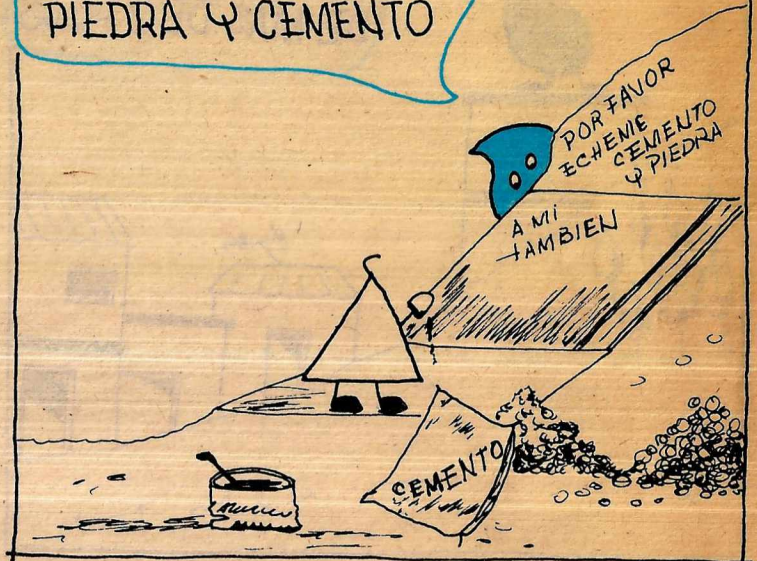 PIEDRA Y CEMENTO
POR FAVOR
ECHEME
CEMENTO
Y PIEDRA
A MI
TAMBIEN
CEMENTO